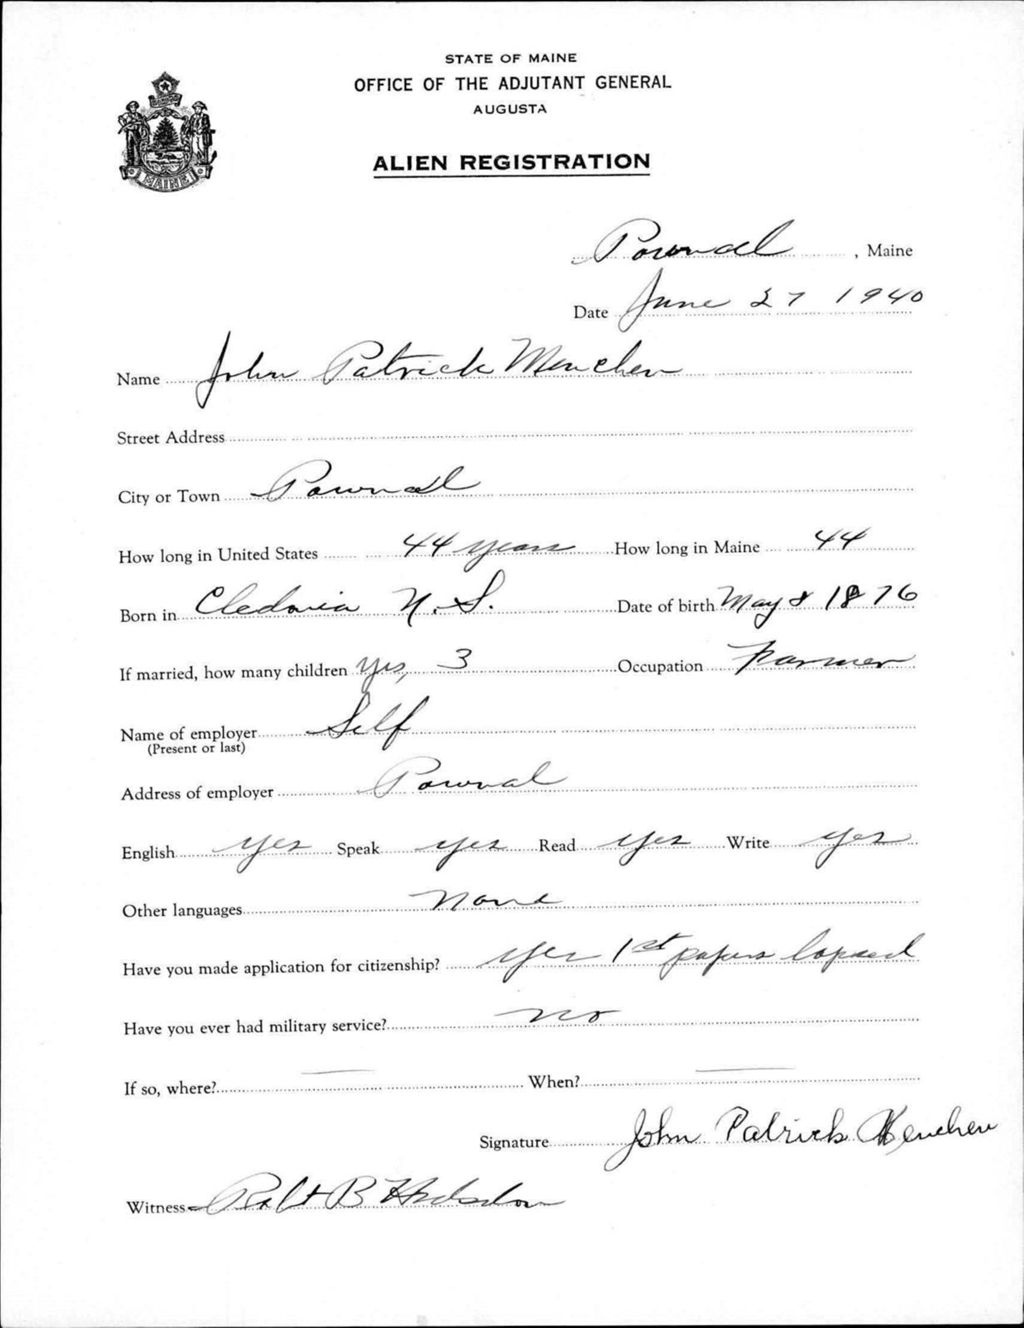 STATE OF MAINE
OFFICE OF THE ADJUTANT GENERAL
AUGUSTA
ALIEN REGISTRATION
MAINE
Pownal, Maine
Date June 27 1940
Name John Patrick Menchen
Street Address
City or Town Pownal
How long in United States 44 years How long in Maine 44
Born in Cledonia N.S. Date of birth May 8 1876
If married, how many children Yes, 3 Occupation Farmer
Name of employer Self
(Present or last)
Address of employer Pownal
English yes Speak yes Read yes Write yes
Other languages None
Have you made application for citizenship? yes 1st papers lapsed
Have you ever had military service? no
If so, where? — When? —
Signature John Patrick Menchen
Witness B